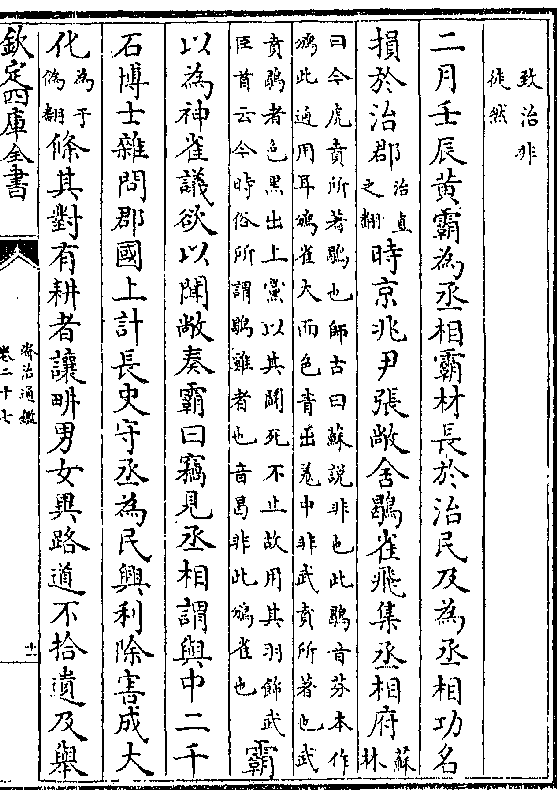 致治非
徒然
二月壬辰黄霸為丞相霸材長於治民及為丞相功名
損於治郡
治直
之翻
時京兆尹張敞舍鶡雀飛集丞相府
蘇
林
曰今虎賁所著鶡也師古曰蘇說非也此鶡音芬本作
鳻此通用耳鳻雀大而色青出羌中非武賁所著也武
賁鶡者色黑出上黨以其鬬死不止故用其羽飾武
臣首云今時俗所謂鶡雞者也音曷非此鳻雀也
霸
以為神雀議欲以聞敞奏霸曰竊見丞相請與中二千
石博士雜問郡國上計長史守丞為民興利除害成大
化
為于
偽翻
條其對有耕者讓畔男女異路道不拾遺及舉
欽定四庫全書
資治通鑑
卷二十七
十一